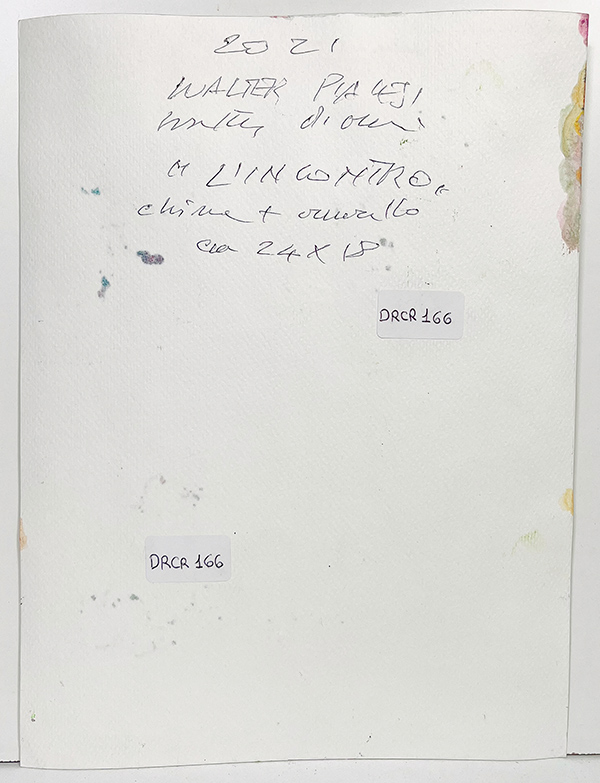 2021
WALTER PIACESI
" L'INCONTRO "
china + acquerello
cm 24 X 18
DRCR 166
DRCR 166